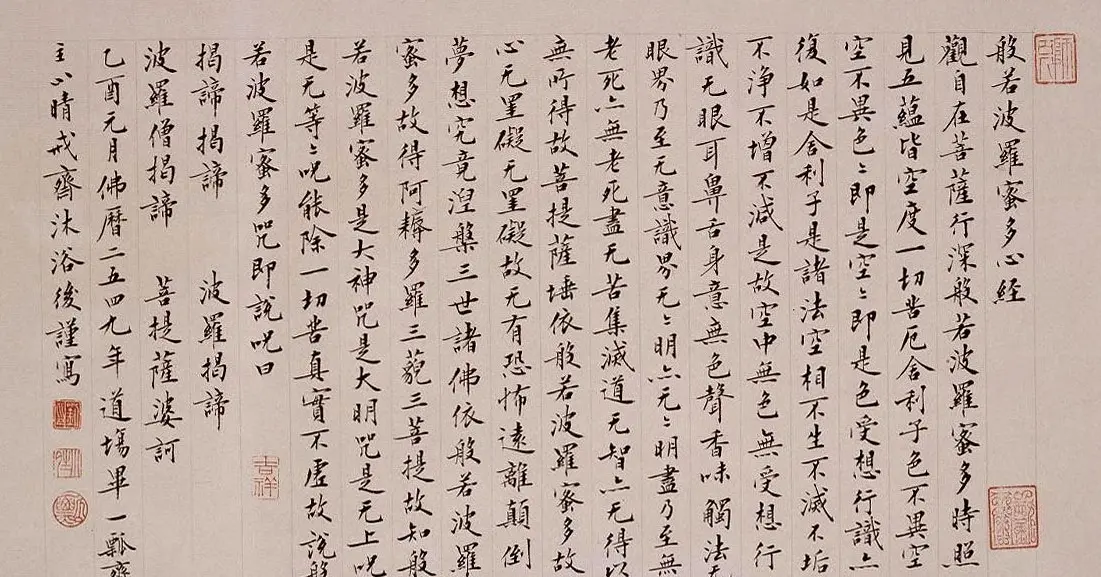 般若波羅蜜多心經
觀自在菩薩行深般若波羅蜜多時照
見五蘊皆空度一切苦厄舍利子色不異空
空不異色〻即是空〻即是色受想行識亦
復如是舍利子是諸法空相不生不滅不垢
不淨不增不減是故空中無色無受想行
識无眼耳鼻舌身意無色聲香味觸法无
眼界乃至无意識界无〻明亦无〻明盡乃至無
老死亦無老死盡无苦集滅道无智亦无得以
無所得故菩提薩埵依般若波羅蜜多故
心无罣礙无罣礙故无有恐怖遠離顛倒
夢想究竟涅槃三世諸佛依般若波羅
蜜多故得阿耨多羅三藐三菩提故知般
若波羅蜜多是大神咒是大明咒是无上咒
是无等〻咒能除一切苦真實不虛故說般
若波羅蜜多咒即說呪曰
吉祥
揭諦揭諦 波羅揭諦
波羅僧揭諦 菩提薩婆訶
乙酉元月佛曆二五四九年道場畢一瓢齋
主人晴戒齋沐浴後謹寫